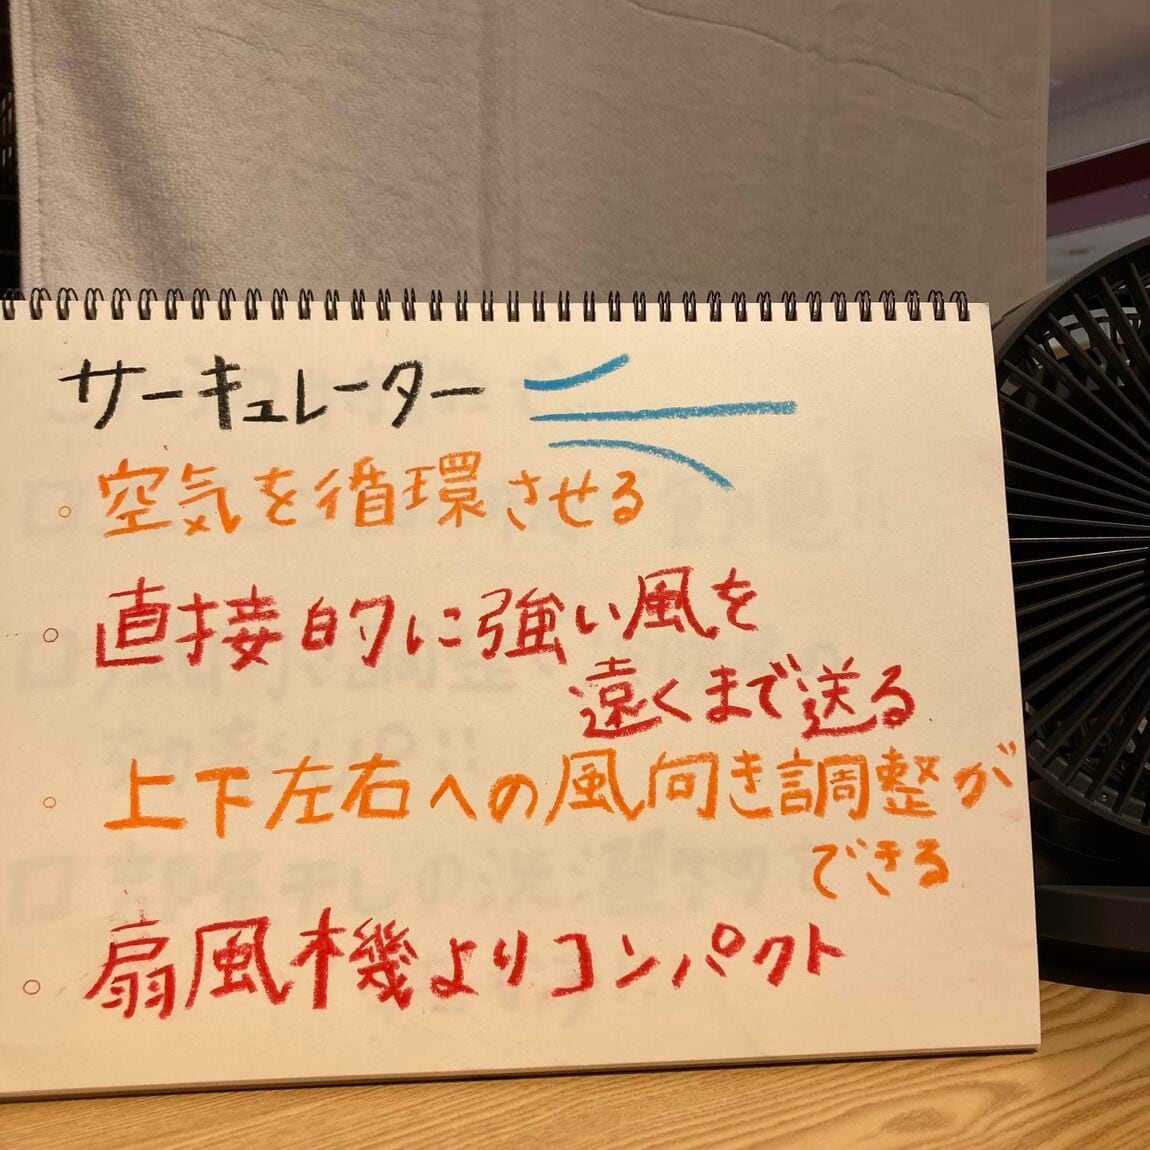 サーキュレーター
空気を循環させる
直接的に強い風を
遠くまで送る
上下左右への風向き調整が
できる
扇風機よりコンパクト